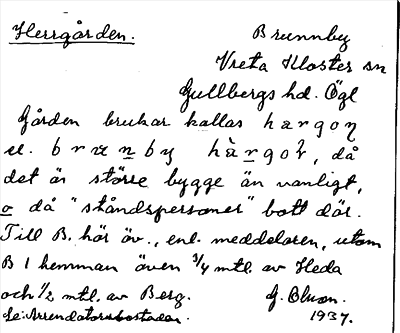 Herrgården. Brunnby
Vreta Kloster sn
Gullbergs hd. Ögl
Gården brukar kallas hargoŋ
el. brunby hàrgoŋ, då
det är större bygge än vanligt,
o då "ståndspersoner" bott där.
Till B. hör äv., enl. meddelaren, utom
B 1 hemman även 3/4 mtl. av Heda
och 1/2 mtl. av Berg. G. Olson.
Se: Arrendatorsbostaden. 1937.